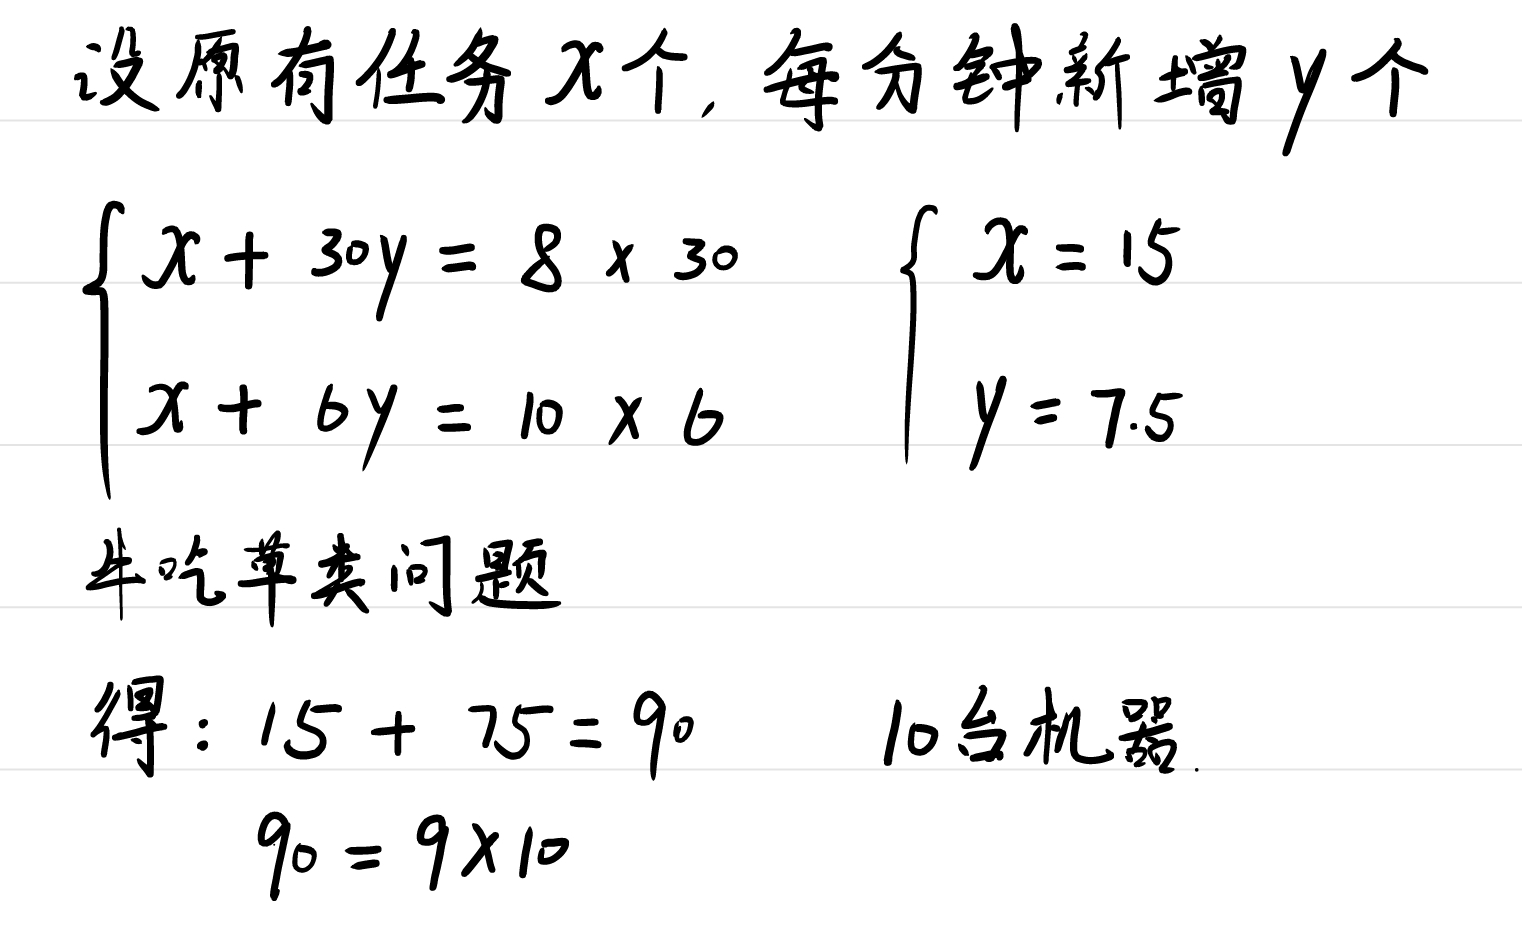 设原有任务x个，每分钟新增y个
x + 30y = 8 × 30　x = 15
x + 6y = 10 × 6　y = 7.5
牛吃草类问题
得：15 + 75 = 90　10台机器.
90 = 9×10